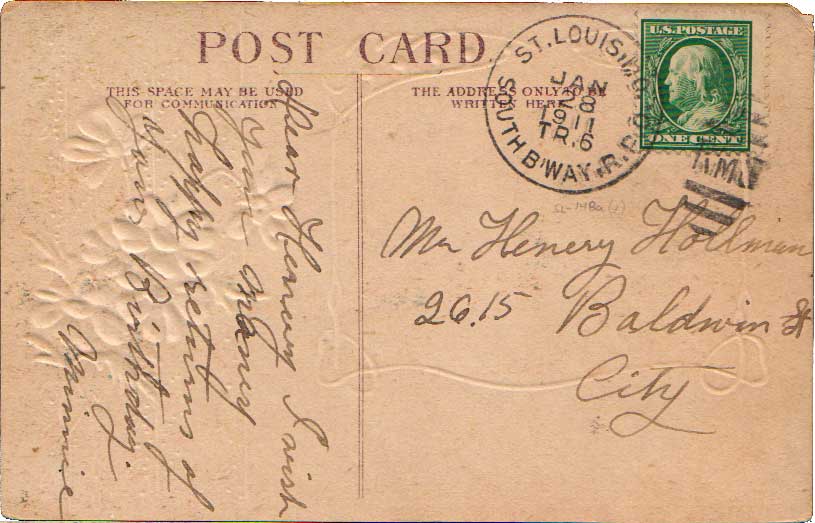 POST CARD
THIS SPACE MAY BE USED
FOR COMMUNICATION
THE ADDRESS ONLY TO BE
WRITTEN HERE
ST. LOUIS, MO.
JAN
28
1911
TR. 6
SOUTH B'WAY. R.P.O.
U.S. POSTAGE
ONE CENT
Dear Henery I wish
you many
happy returns of
your Birthday.
Minnie
Mr Henery Hollman
2615 Baldwin St
City